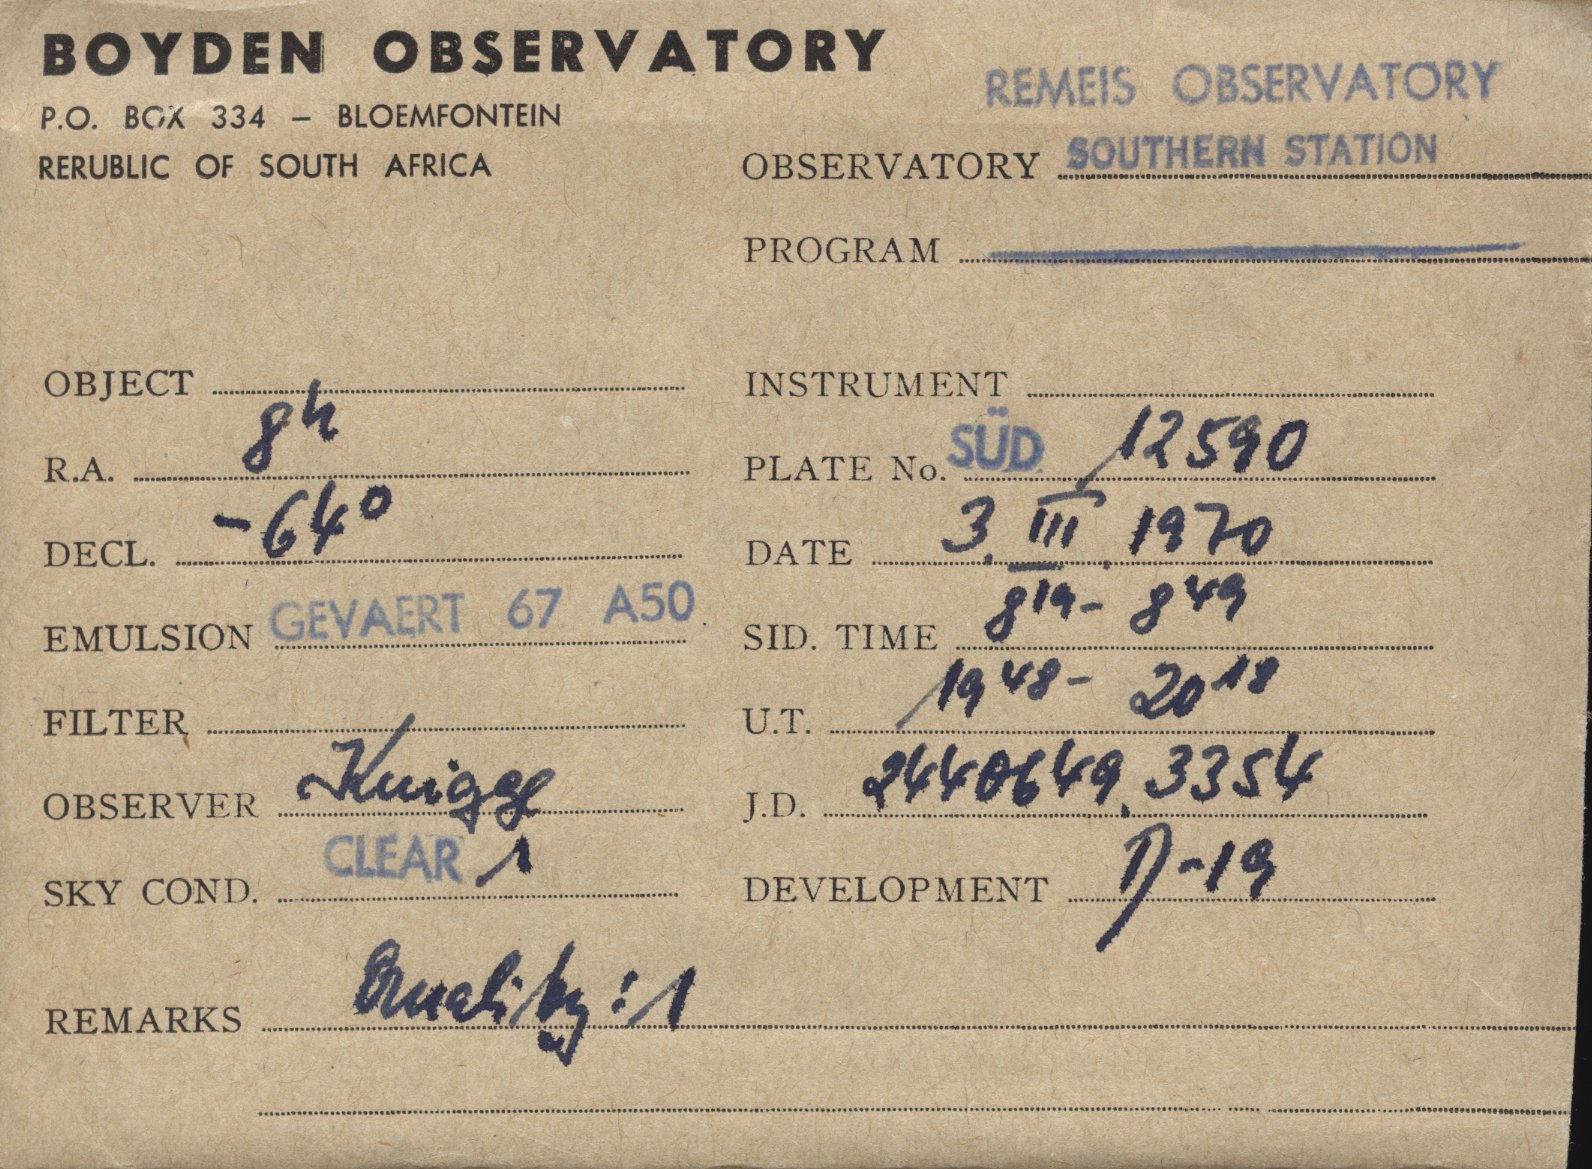 BOYDEN OBSERVATORY
P.O. BOX 334 – BLOEMFONTEIN
RERUBLIC OF SOUTH AFRICA
REMEIS OBSERVATORY
OBSERVATORY SOUTHERN STATION
PROGRAM
OBJECT
INSTRUMENT
R.A. 8h
PLATE No. SÜD 12590
DECL. -64°
DATE 3. III. 1970
EMULSION GEVAERT 67 A50
SID. TIME 8 19 - 8 49
FILTER
U.T. 19 48 - 20 18
OBSERVER Knigge
J.D. 2440649.3354
SKY COND. CLEAR 1
DEVELOPMENT D-19
REMARKS Quality: 1